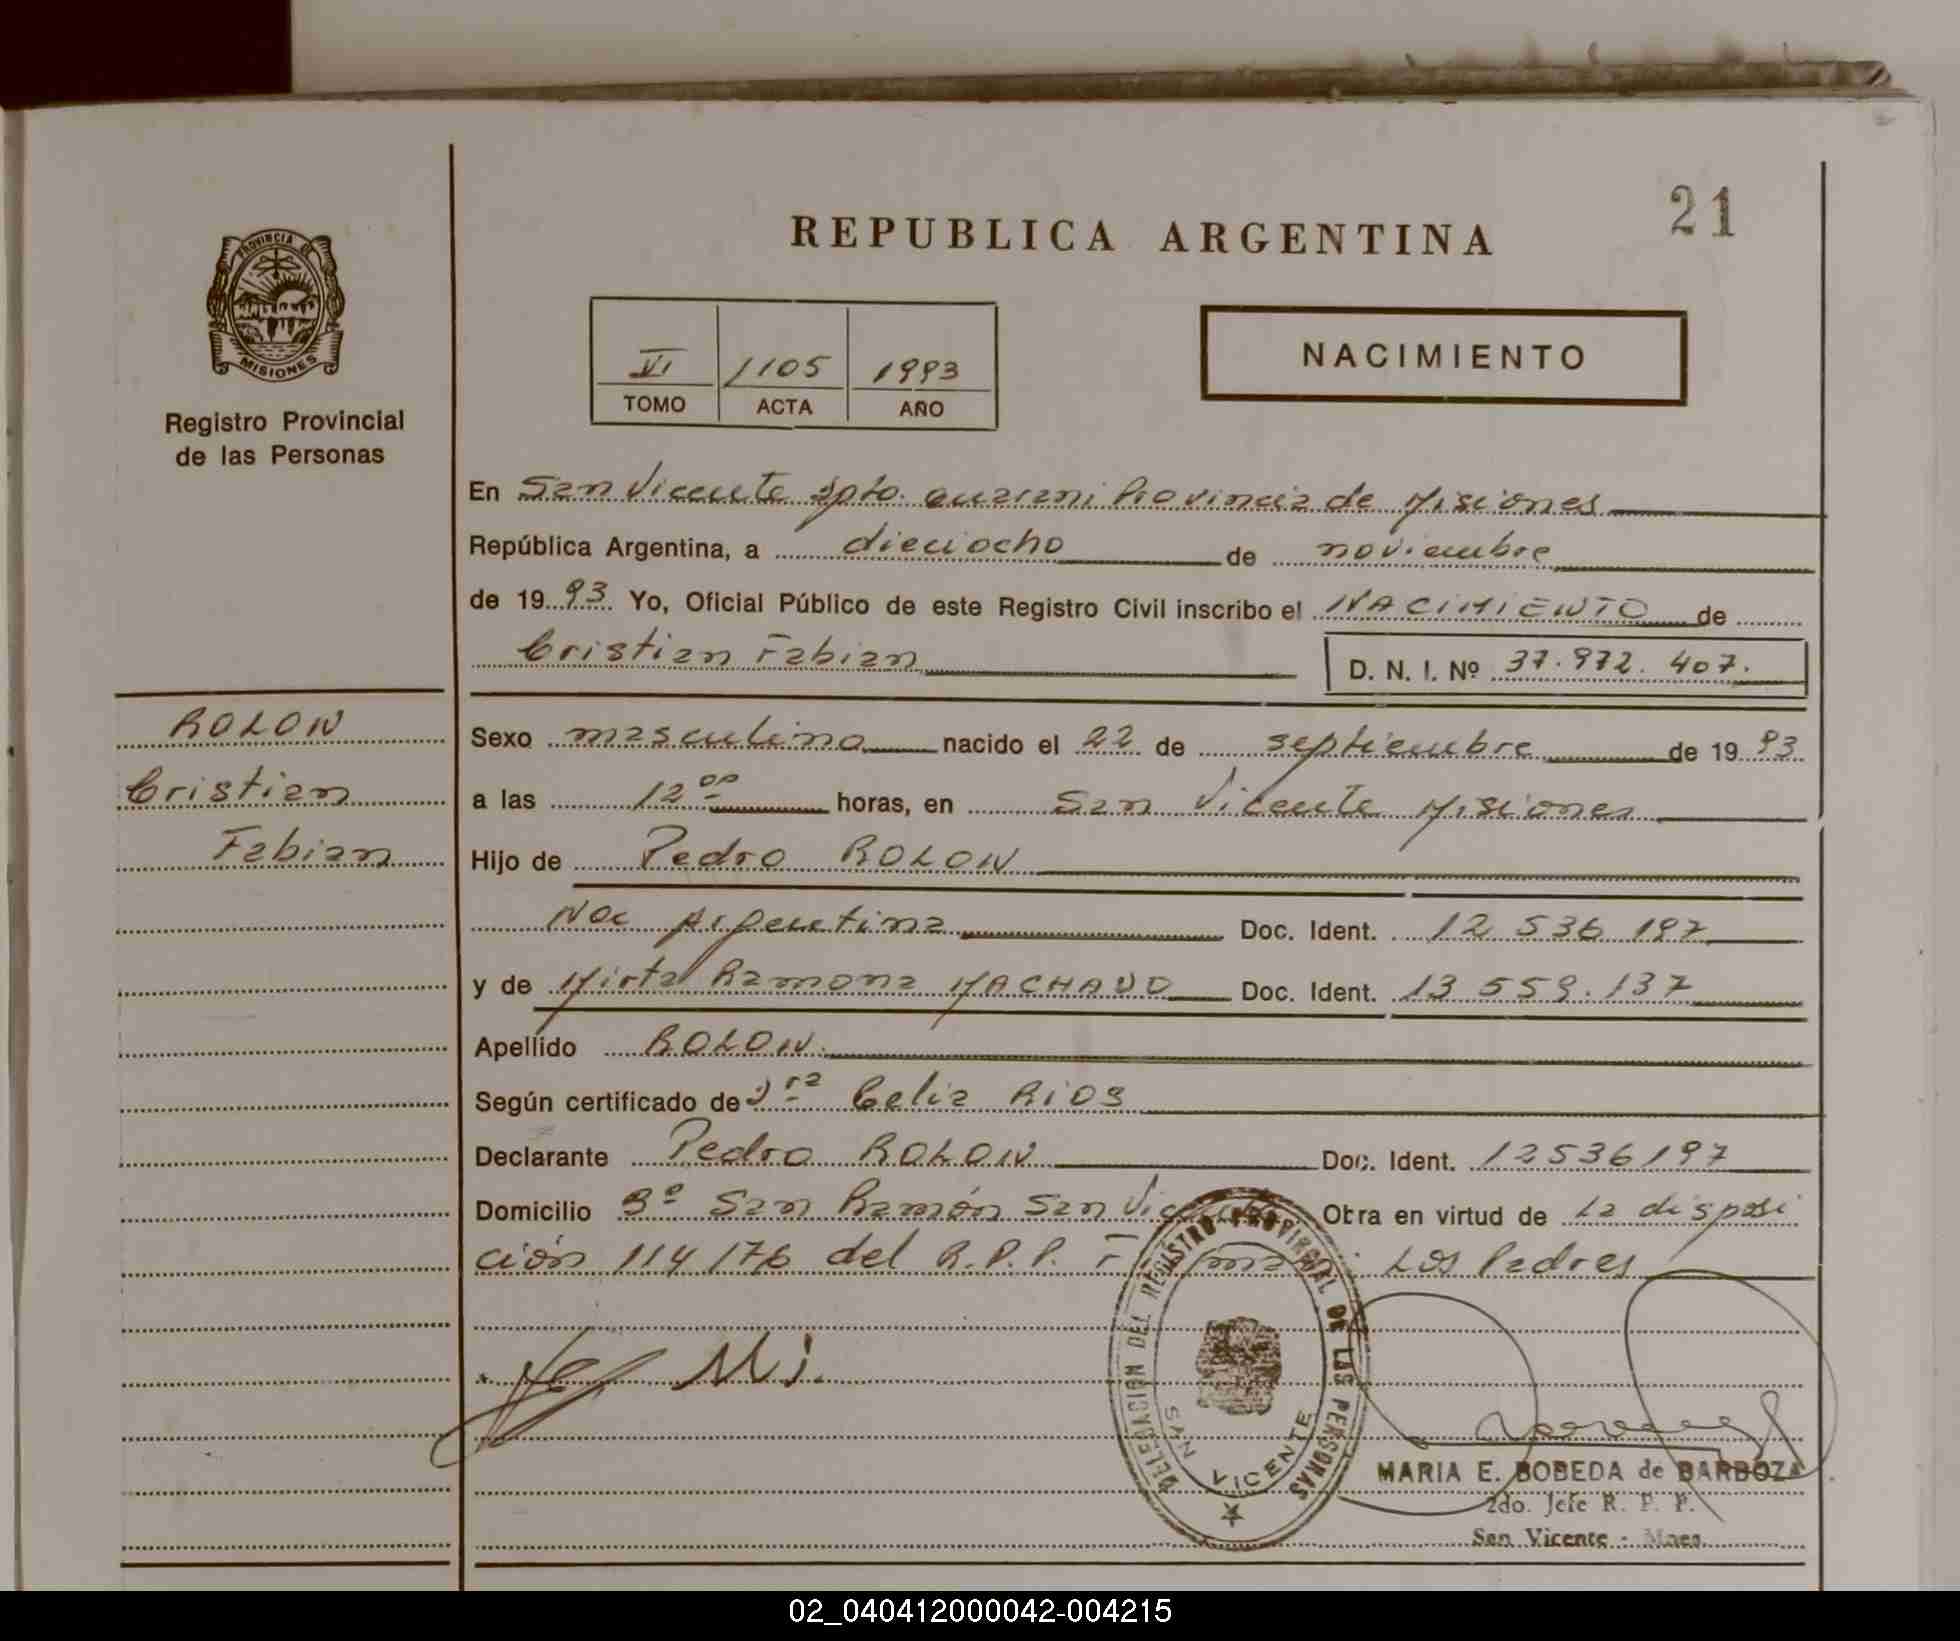 21
REPUBLICA ARGENTINA
PROVINCIA DE
MISIONES
Registro Provincial
de las Personas
VI 1105 1993
TOMO ACTA AÑO
NACIMIENTO
En San Vicente Dpto. Guarani Provincia de Misiones
República Argentina, a dieciocho de noviembre
de 19 93 Yo, Oficial Público de este Registro Civil inscribo el NACIMIENTO de
Cristian Fabian
D. N. I. Nº 37.972.407.
ROLON
Cristian
Fabian
Sexo masculino nacido el 22 de septiembre de 19 93
a las 12 00 horas, en San Vicente Misiones
Hijo de Pedro ROLON
Nac Argentina Doc. Ident. 12 536 197
y de Mirta Ramona MACHADO Doc. Ident. 13 559.137
Apellido ROLON.
Según certificado de Dra Celia RIOS
Declarante Pedro ROLON Doc. Ident. 12536197
Domicilio Bº San Ramón San Vicente Obra en virtud de la disposi
ción 114/76 del R.P.P. Los Padres
DELEGACION DEL REGISTRO PROVINCIAL DE LAS PERSONAS
SAN VICENTE
MARIA E. BOBEDA de BARBOZA
2do. Jefe R. P. P.
San Vicente - Mnes.
02_040412000042-004215